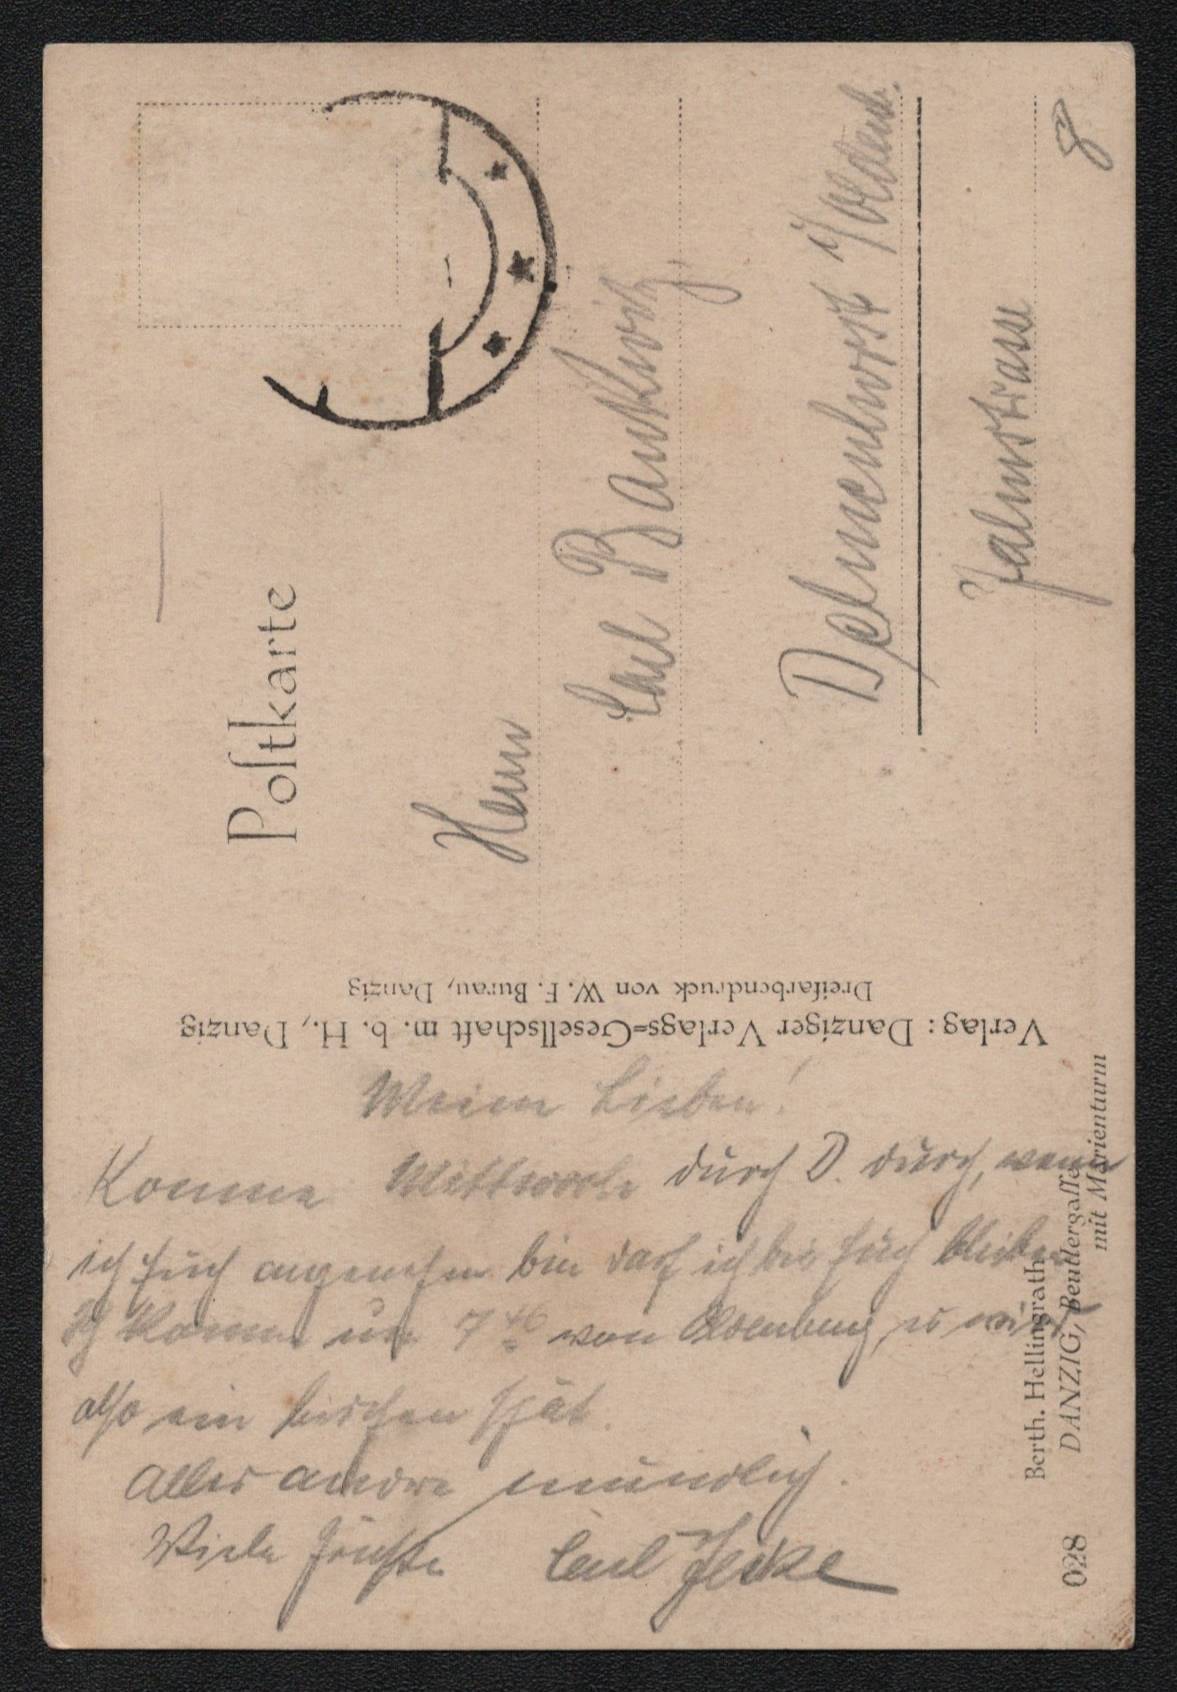 Postkarte
Herrn
Carl Bankwitz,
Delmenhorst i/Oldenb.
8
Verlag: Danziger Verlags=Gesellschaft m. b. H., Danzig
Dreifarbendruck von W. F. Burau, Danzig
Meine Lieben!
Komme Mittwoch durch D. durch, wenn
ich Euch angenehm bin darf ich bei Euch bleiben
Ich komme um 7 46 von Oldenburg, es wird
also ein bischen spät.
Alles andre mündlich.
Viele Grüße Carl
Berth. Hellingrath
DANZIG, Beutlergasse
mit Marienturm
028